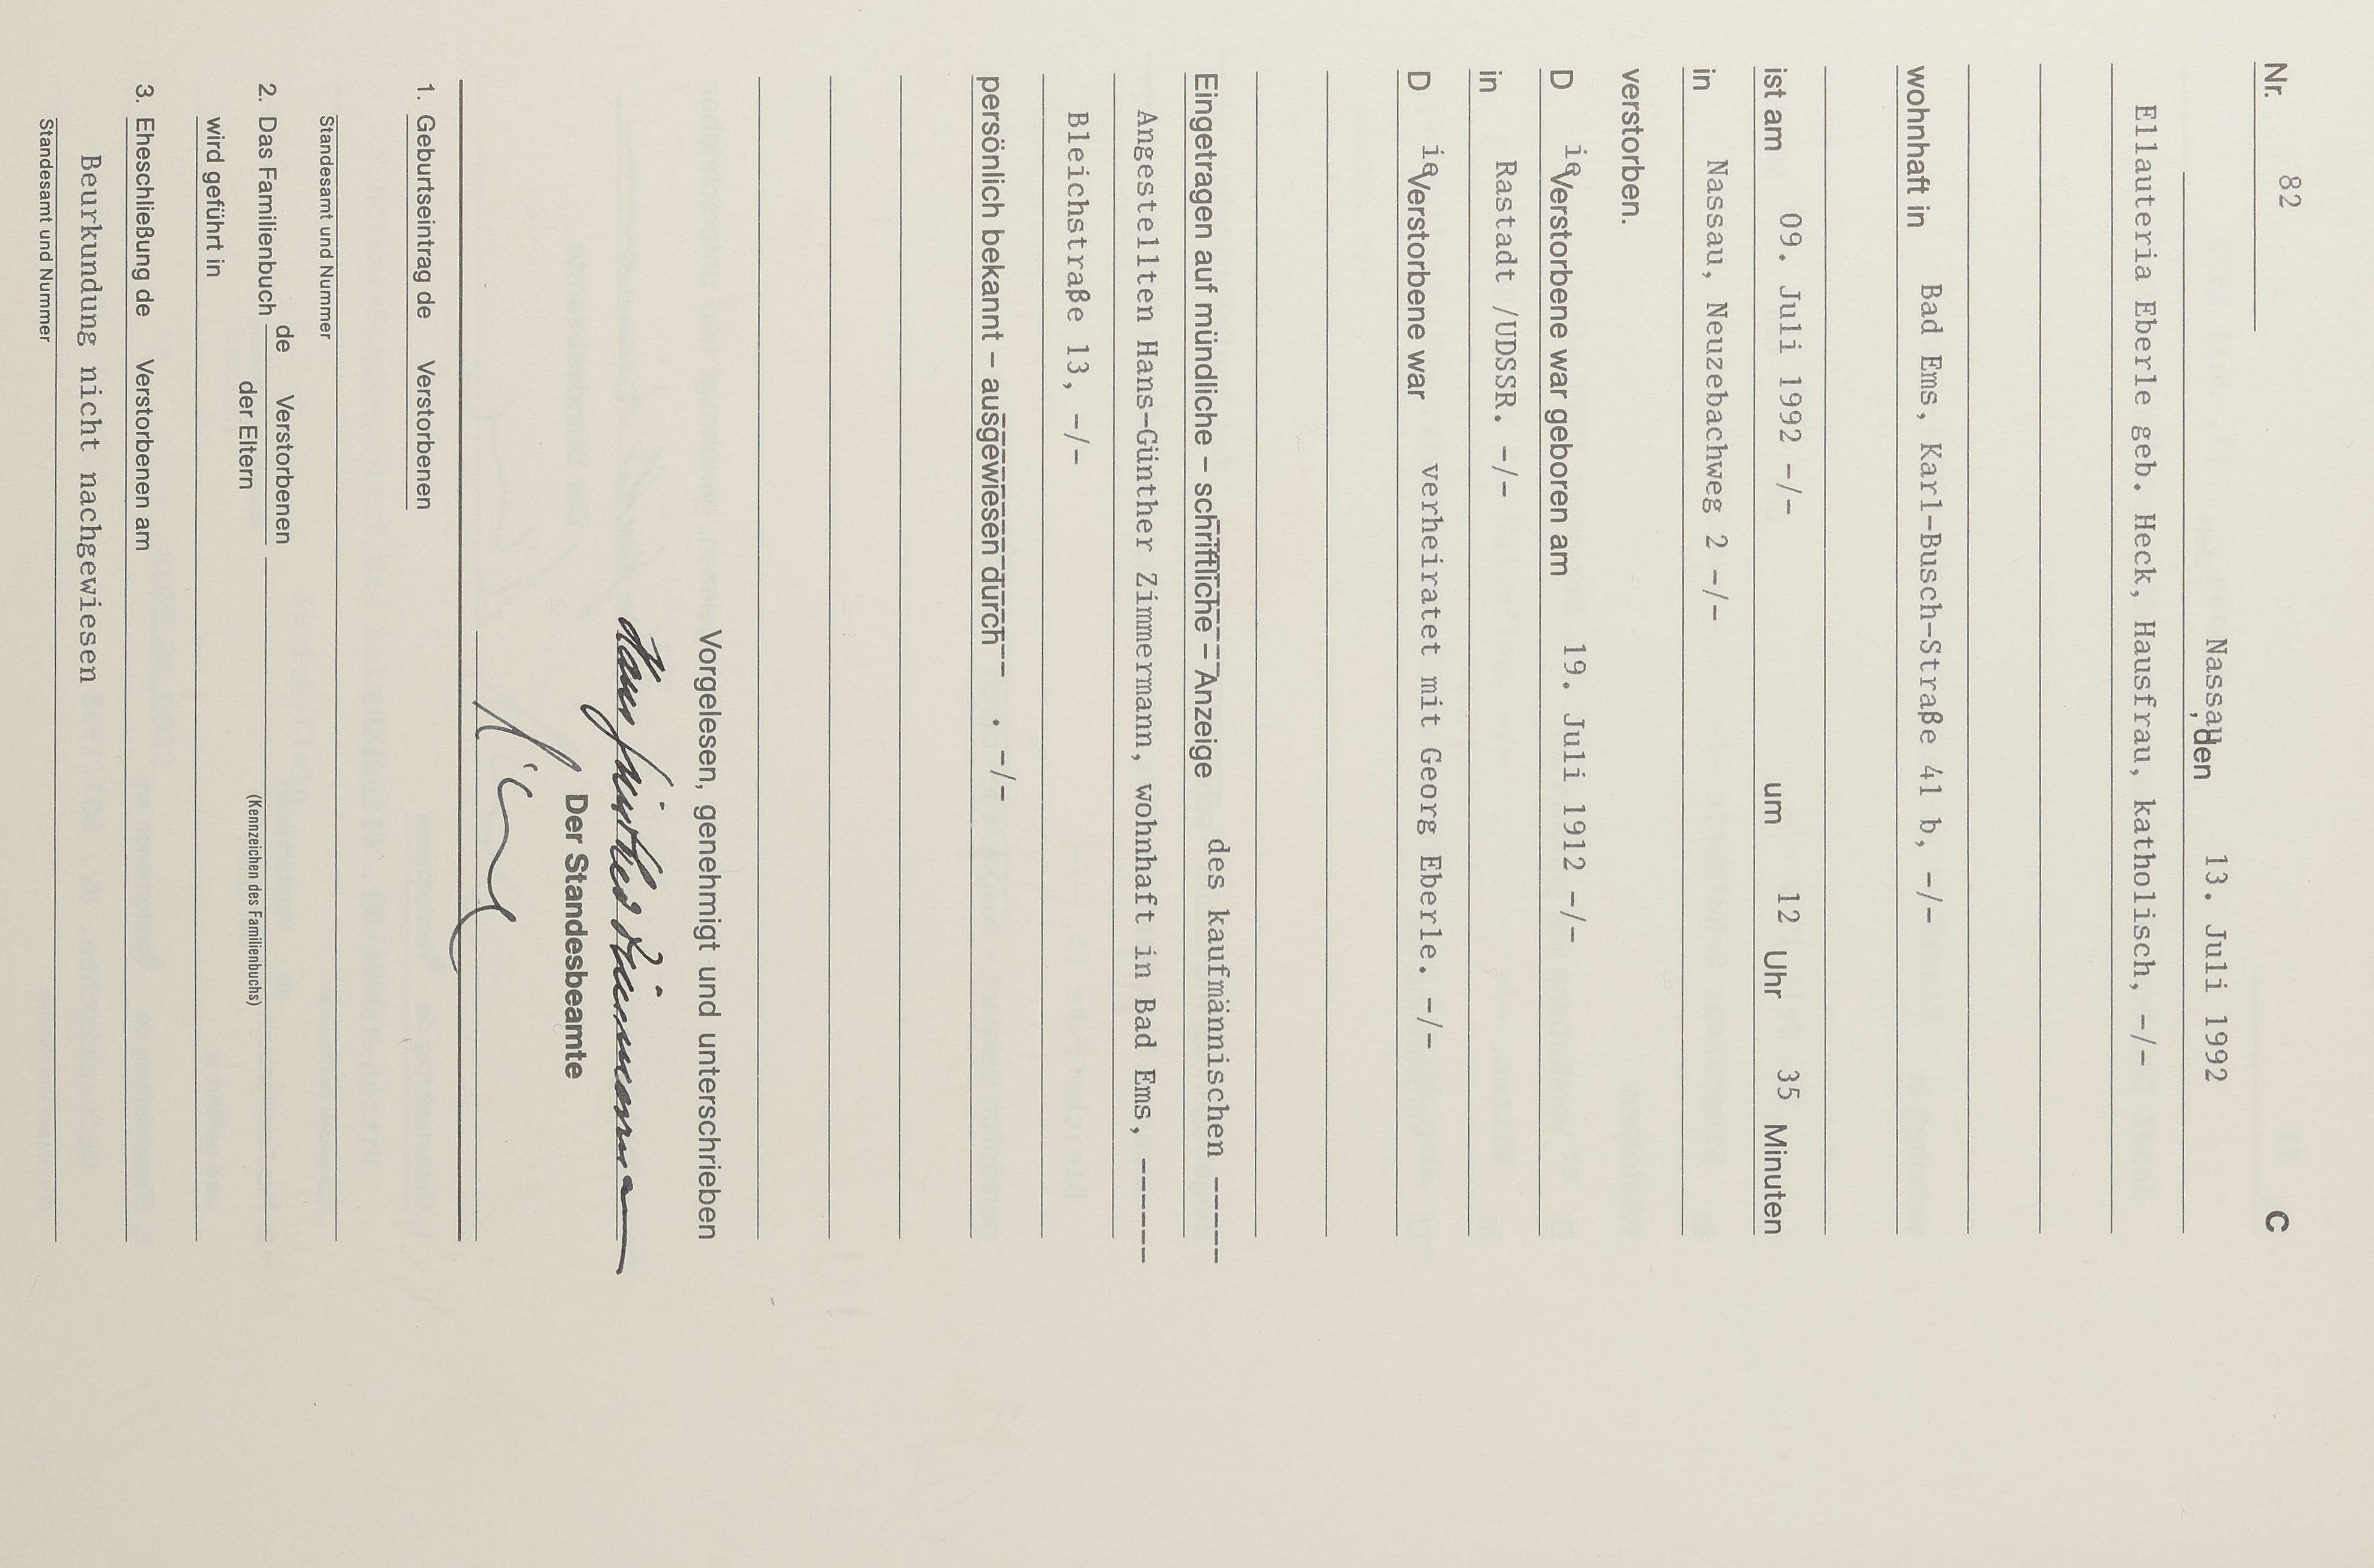 Nr. 82 C
Nassau, den 13. Juli 1992
Ellauteria Eberle geb. Heck, Hausfrau, katholisch, -/-
wohnhaft in Bad Ems, Karl-Busch-Straße 41 b, -/-
ist am 09. Juli 1992 -/- um 12 Uhr 35 Minuten
in Nassau, Neuzebachweg 2 -/-
verstorben.
D ie Verstorbene war geboren am 19. Juli 1912 -/-
in Rastadt /UDSSR. -/-
D ie Verstorbene war verheiratet mit Georg Eberle. -/-
Eingetragen auf mündliche – schriftliche – Anzeige des kaufmännischen -----
Angestellten Hans-Günther Zimmermann, wohnhaft in Bad Ems, ------
Bleichstraße 13, -/-
persönlich bekannt – ausgewiesen durch . -/-
Vorgelesen, genehmigt und unterschrieben
Hans Günther Zimmermann
Der Standesbeamte
1. Geburtseintrag de Verstorbenen
Standesamt und Nummer
2. Das Familienbuch de Verstorbenen
der Eltern (Kennzeichen des Familienbuchs)
wird geführt in
3. Eheschließung de Verstorbenen am
Beurkundung nicht nachgewiesen
Standesamt und Nummer